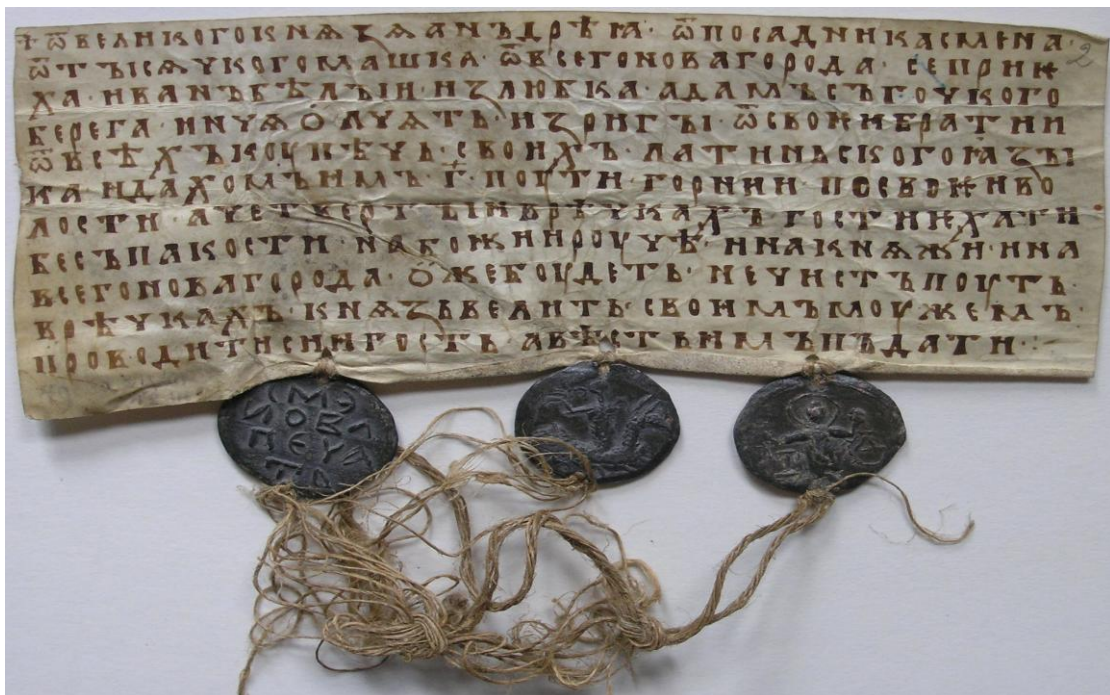 + ѿ великого кнѧзѧ анъдрѣꙗ · ѿ посадника смена ·
2
ѿ тъісѧцкого машкѧ · ѿ всего новагорода · се приѥ
ха иванъ бѣлъіи · из любка · адамъ съ гоцкого
берега · инча ѻлчѧть · из ригъі · ѿ своѥи братии
ѿ всѣхъ коупѣчь · своихъ латиньского ꙗзъі
ка и дахомъ имъ · г҃ · поути горнии по своѥи во
лости · а четвергъіи в рѣчкахъ гости ѥхати
бес пакости · на божии роуцѣ · и на кнѧжи · и на
всего новагорода · ѻже боудеть · не чистъ поуть ·
в рѣчкахъ · кнѧзь велить · своимъ моужемъ ·
проводити сии гость · а вѣсть имъ пѣдати ⁘